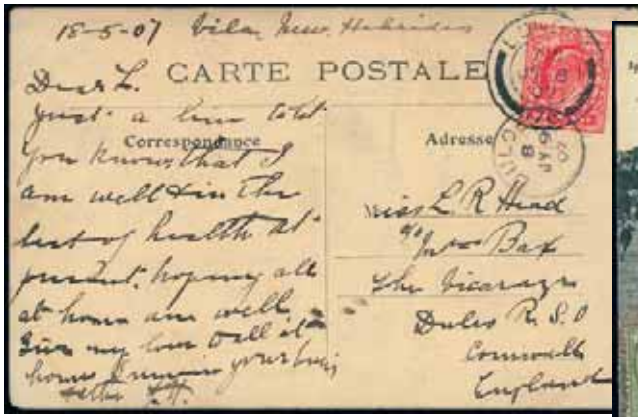 18-5-07 Vila, New Hebrides
CARTE POSTALE
Dear L.
Just a line to let
Correspondance
you know that I
am well & in the
best of health at
present, hoping all
at home are well,
Give my love to all at
home I remain your loving
Adresse
Miss L. R Head
c/o Mrs Bax
The Vicarage
Dulo R. S. O
Cornwall
England